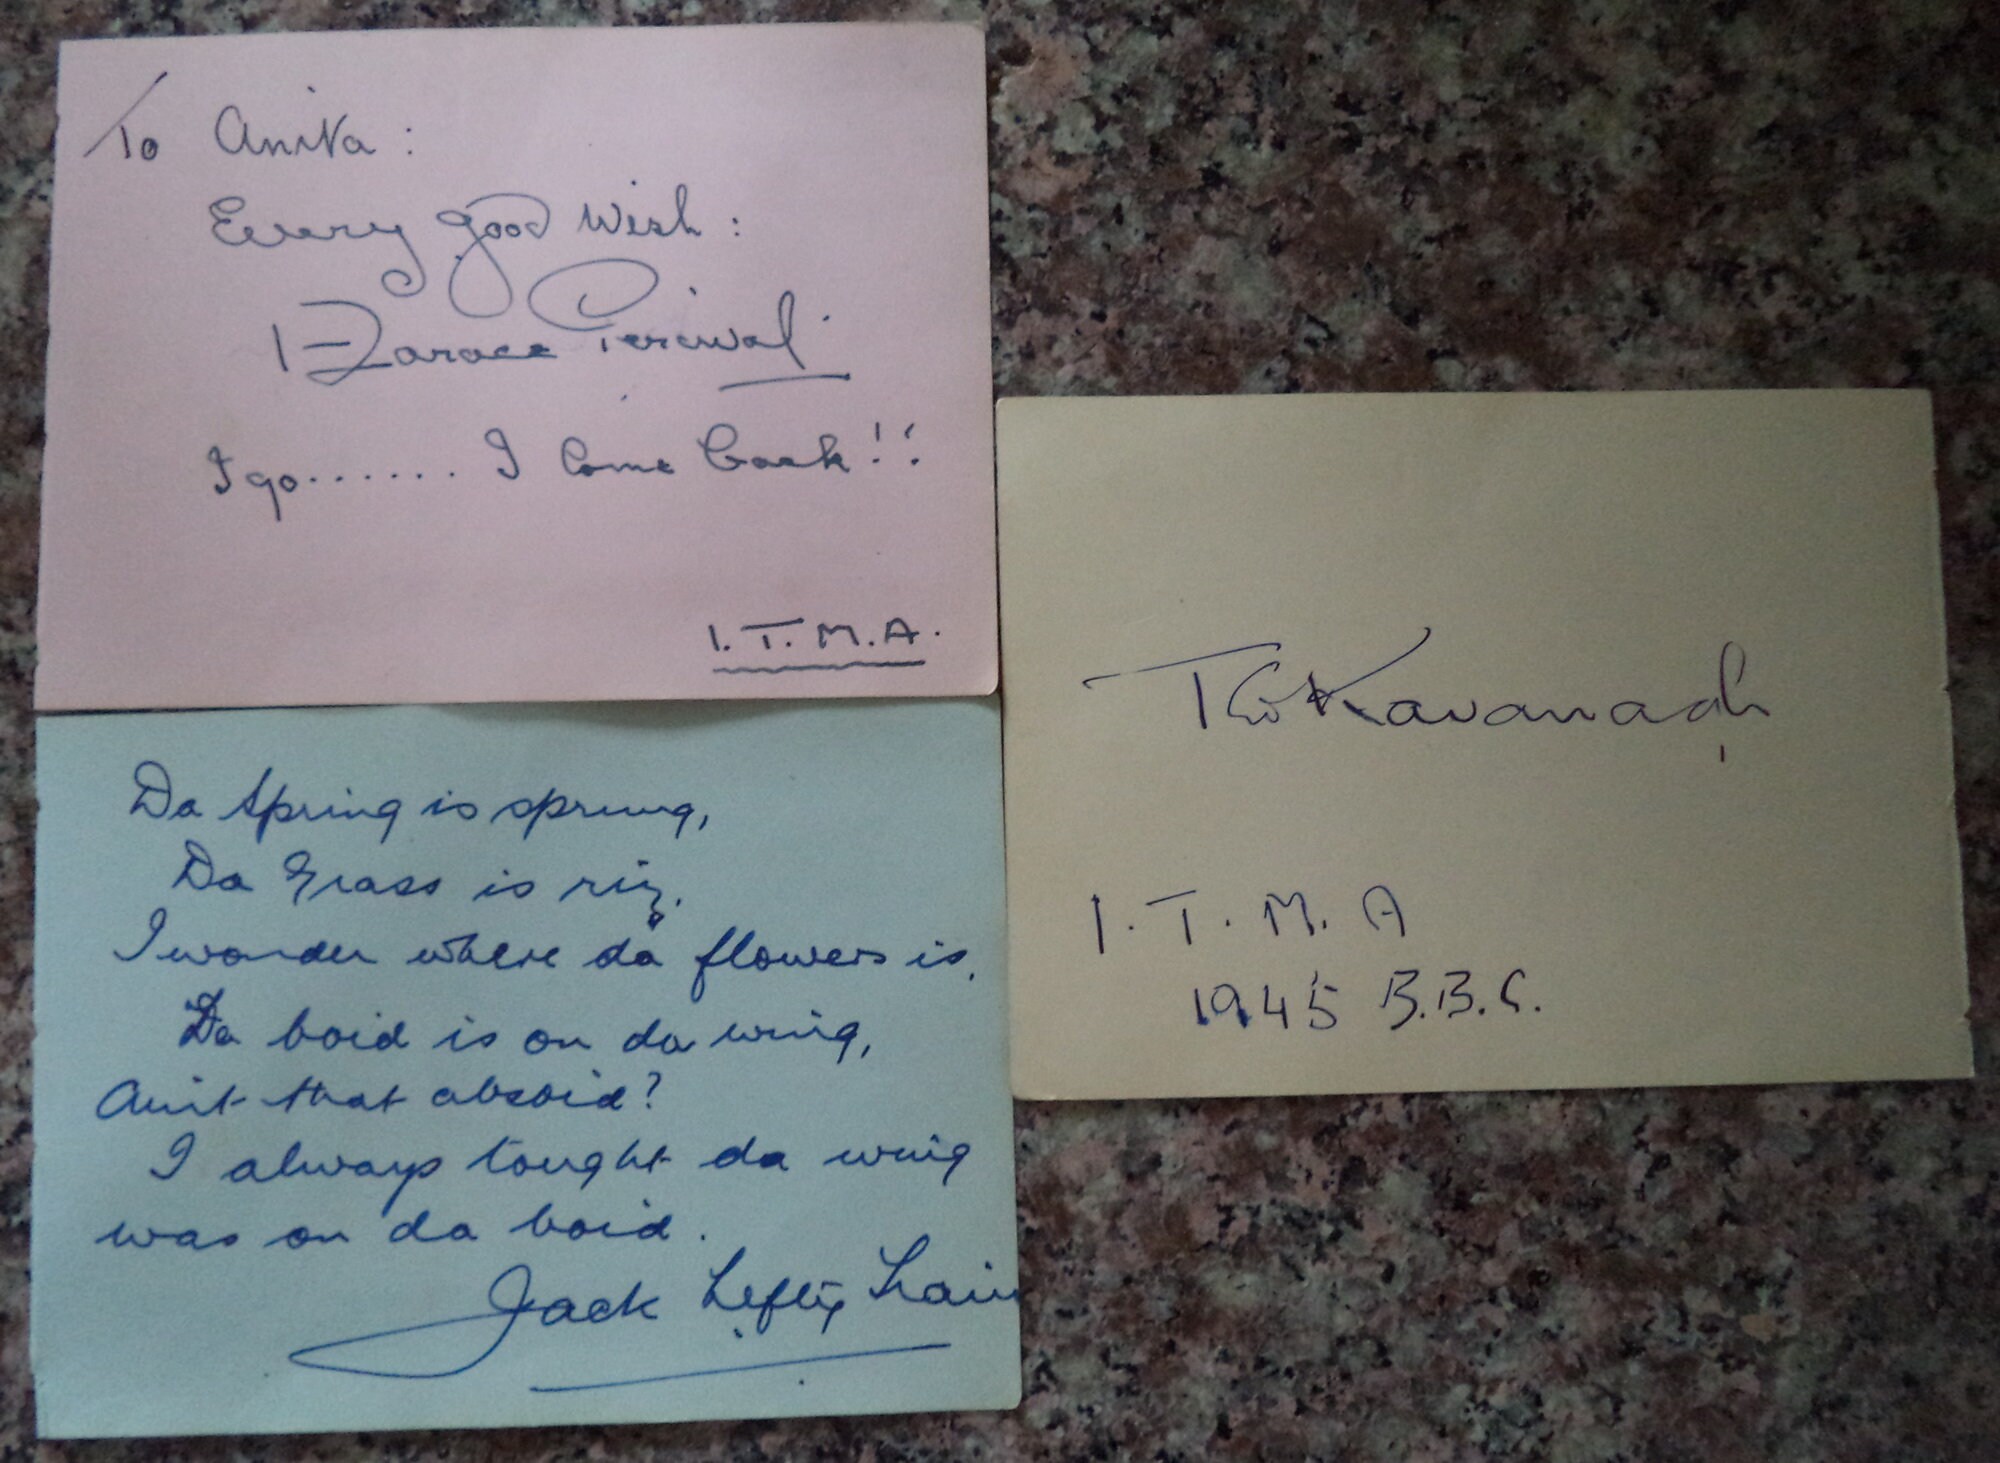 To Anita :
Every good Wish :
Horace Percival
I go....... I Come back !!
I.T.M.A.
Da Spring is sprung,
Da Grass is riz.
I wonder where da flowers is.
Da boid is on da wing,
Ain't that absoid?
I always tought da wing
was on da boid.
Jack Lefty Train
Ted Kavanagh
I.T.M.A
1945 B.B.C.